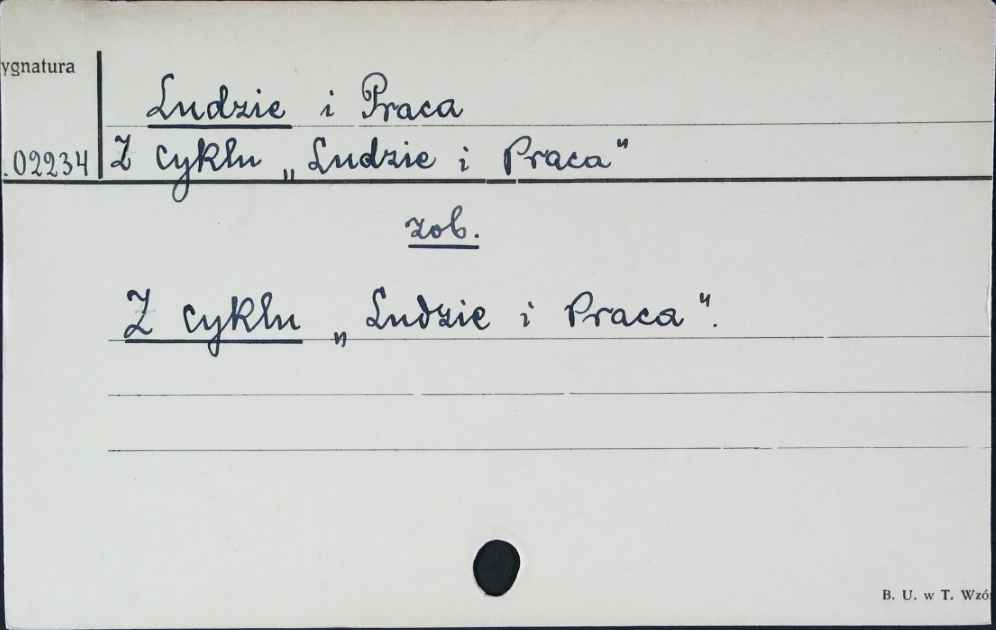 ygnatura
Ludzie i Praca
.02234 Z cyklu „Ludzie i Praca"
zob.
Z cyklu „Ludzie i Praca".
B. U. w T. Wzó